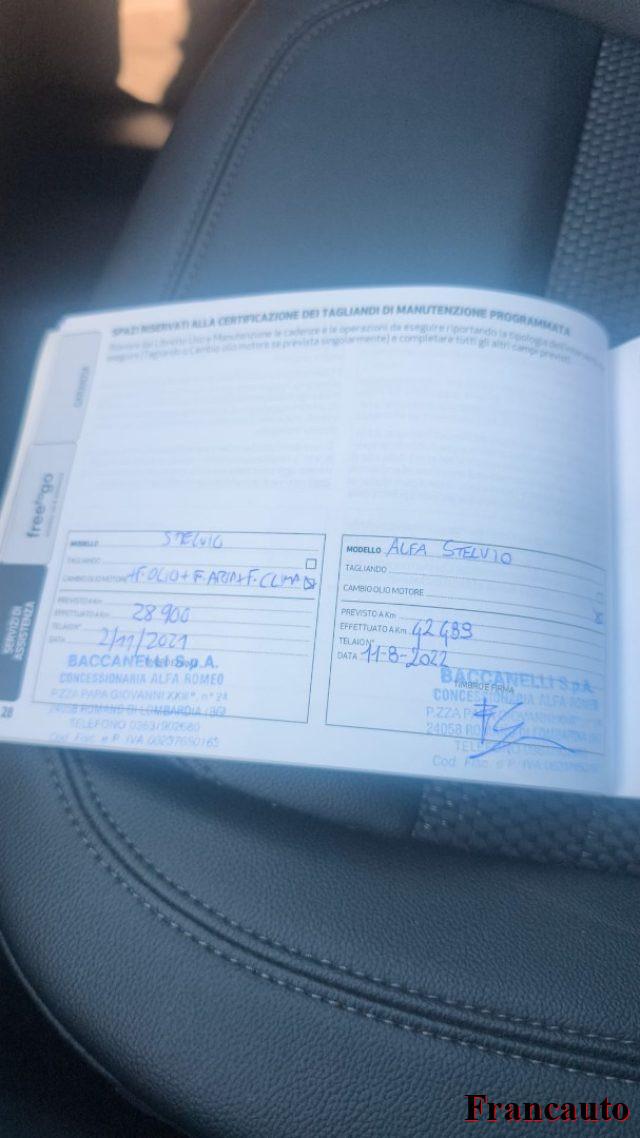 SPAZI RISERVATI ALLA CERTIFICAZIONE DEI TAGLIANDI DI MANUTENZIONE PROGRAMMATA
Uso e Manutenzione le cadenze e le operazioni da eseguire riportando la tipologia
(Tagliando o Cambio olio motore se prevista singolarmente) e completare tutti gli altri campi previsti.
GARANZIA
free to go
SERVIZI DI
ASSISTENZA
28
MODELLO STELVIO
TAGLIANDO
CAMBIO OLIO MOTORE +F.OLIO + F.ARIA + F.CLIMA
PREVISTO A Km
EFFETTUATO A Km 28 900
TELAIO N°
DATA 2/11/2021
BACCANELLI S.p.A.
CONCESSIONARIA ALFA ROMEO
P.ZZA PAPA GIOVANNI XXIII°, n° 24
24058 ROMANO DI LOMBARDIA (BG)
TELEFONO 0363/902680
Cod. Fisc. e P. IVA
MODELLO ALFA STELVIO
TAGLIANDO
CAMBIO OLIO MOTORE
PREVISTO A Km
EFFETTUATO A Km 42 489
TELAIO N°
DATA 11-8-2022
TIMBRO E FIRMA
BACCANELLI S.p.A.
CONCESSIONARIA ALFA ROMEO
P.ZZA
24058
Cod. Fisc. e P. IVA
Francauto